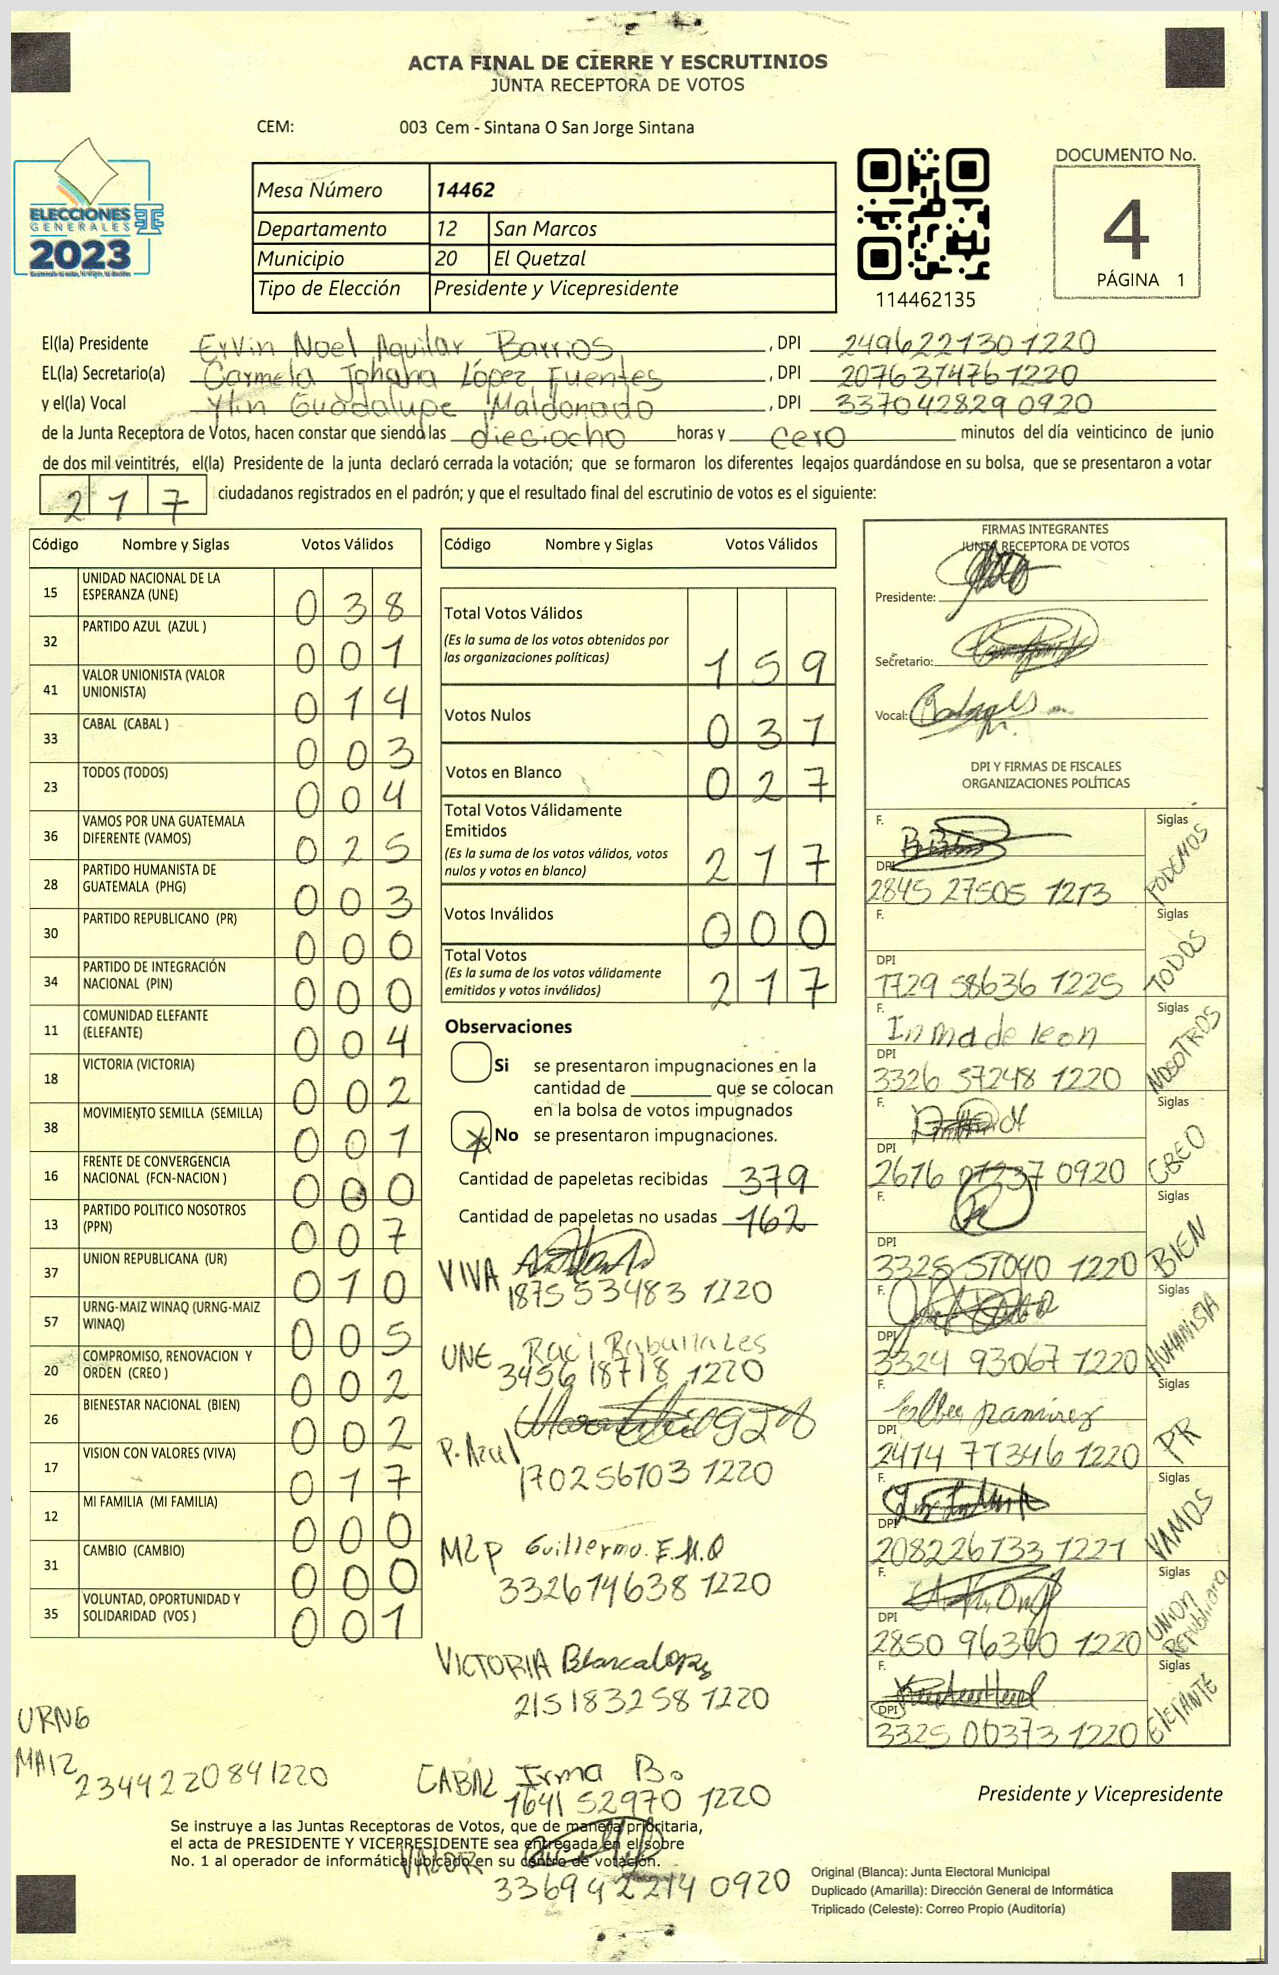 ACTA FINAL DE CIERRE Y ESCRUTINIOS
JUNTA RECEPTORA DE VOTOS
CEM: 003 Cem - Sintana O San Jorge Sintana
ELECCIONES
GENERALES
2023
Mesa Número 14462
Departamento 12 San Marcos
Municipio 20 El Quetzal
Tipo de Elección Presidente y Vicepresidente
114462135
DOCUMENTO No.
4
PÁGINA 1
El(la) Presidente Ervin Noel Aguilar Barrios, DPI 2496221301220
EL(la) Secretario(a) Carmela Johana López Fuentes, DPI 2076374761220
y el(la) Vocal Ylin Guadalupe Maldonado, DPI 3370428290920
de la Junta Receptora de Votos, hacen constar que siendo las dieciocho horas y cero minutos del día veinticinco de junio
de dos mil veintitrés, el(la) Presidente de la junta declaró cerrada la votación; que se formaron los diferentes legajos guardándose en su bolsa, que se presentaron a votar
217 ciudadanos registrados en el padrón; y que el resultado final del escrutinio de votos es el siguiente:
Código Nombre y Siglas Votos Válidos
15 UNIDAD NACIONAL DE LA ESPERANZA (UNE) 038
32 PARTIDO AZUL (AZUL ) 001
41 VALOR UNIONISTA (VALOR UNIONISTA) 014
33 CABAL (CABAL ) 003
23 TODOS (TODOS) 004
36 VAMOS POR UNA GUATEMALA DIFERENTE (VAMOS) 025
28 PARTIDO HUMANISTA DE GUATEMALA (PHG) 003
30 PARTIDO REPUBLICANO (PR) 000
34 PARTIDO DE INTEGRACIÓN NACIONAL (PIN) 000
11 COMUNIDAD ELEFANTE (ELEFANTE) 004
18 VICTORIA (VICTORIA) 002
38 MOVIMIENTO SEMILLA (SEMILLA) 001
16 FRENTE DE CONVERGENCIA NACIONAL (FCN-NACION ) 000
13 PARTIDO POLITICO NOSOTROS (PPN) 007
37 UNION REPUBLICANA (UR) 010
57 URNG-MAIZ WINAQ (URNG-MAIZ WINAQ) 005
20 COMPROMISO, RENOVACION Y ORDEN (CREO ) 002
26 BIENESTAR NACIONAL (BIEN) 002
17 VISION CON VALORES (VIVA) 017
12 MI FAMILIA (MI FAMILIA) 000
31 CAMBIO (CAMBIO) 000
35 VOLUNTAD, OPORTUNIDAD Y SOLIDARIDAD (VOS ) 001
URNG
MAIZ
2344220841220
Código Nombre y Siglas Votos Válidos
Total Votos Válidos
(Es la suma de los votos obtenidos por
las organizaciones políticas) 159
Votos Nulos 031
Votos en Blanco 027
Total Votos Válidamente
Emitidos
(Es la suma de los votos válidos, votos
nulos y votos en blanco) 217
Votos Inválidos 000
Total Votos
(Es la suma de los votos válidamente
emitidos y votos inválidos) 217
Observaciones
Si se presentaron impugnaciones en la
cantidad de ________ que se colocan
en la bolsa de votos impugnados
No se presentaron impugnaciones.
Cantidad de papeletas recibidas 379
Cantidad de papeletas no usadas 162
VIVA
1875534831220
UNE
3456187181220
P. Azul
1702561031220
MLP Guillermo. E.M.O
3326746381220
VICTORIA Blanca Lopez
2151832581220
CABAL Irma B.
1641529701220
VALOR
3369422140920
FIRMAS INTEGRANTES
JUNTA RECEPTORA DE VOTOS
Presidente:
Secretario:
Vocal:
DPI Y FIRMAS DE FISCALES
ORGANIZACIONES POLÍTICAS
F. Siglas
DPI PODEMOS
2845 27505 1213
F. Siglas
DPI TODOS
1729 58636 1225
F. Inma de leon Siglas
DPI NOSOTROS
3326 57248 1220
F. Siglas
DPI CREO
2676 07237 0920
F. Siglas
DPI BIEN
3325 57040 1220
F. Siglas
DPI HUMANISTA
3324 93067 1220
F. Ramirez Siglas
DPI PR
2414 77346 1220
F. Siglas
DPI VAMOS
2082267331221
F. Siglas
DPI UNION Republicana
2850 96340 1220
F. Siglas
DPI ELEFANTE
3325 00373 1220
Presidente y Vicepresidente
Se instruye a las Juntas Receptoras de Votos, que de manera prioritaria,
el acta de PRESIDENTE Y VICEPRESIDENTE sea entregada en el sobre
No. 1 al operador de informática ubicado en su centro de votación.
Original (Blanca): Junta Electoral Municipal
Duplicado (Amarilla): Dirección General de Informática
Triplicado (Celeste): Correo Propio (Auditoría)